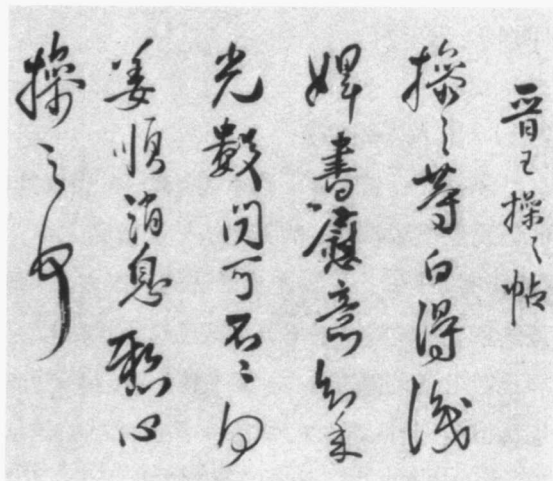 晉王操之帖
操之等白得識
婢書慰意知
光數問可不ゝ
姜順消息懸心
操之